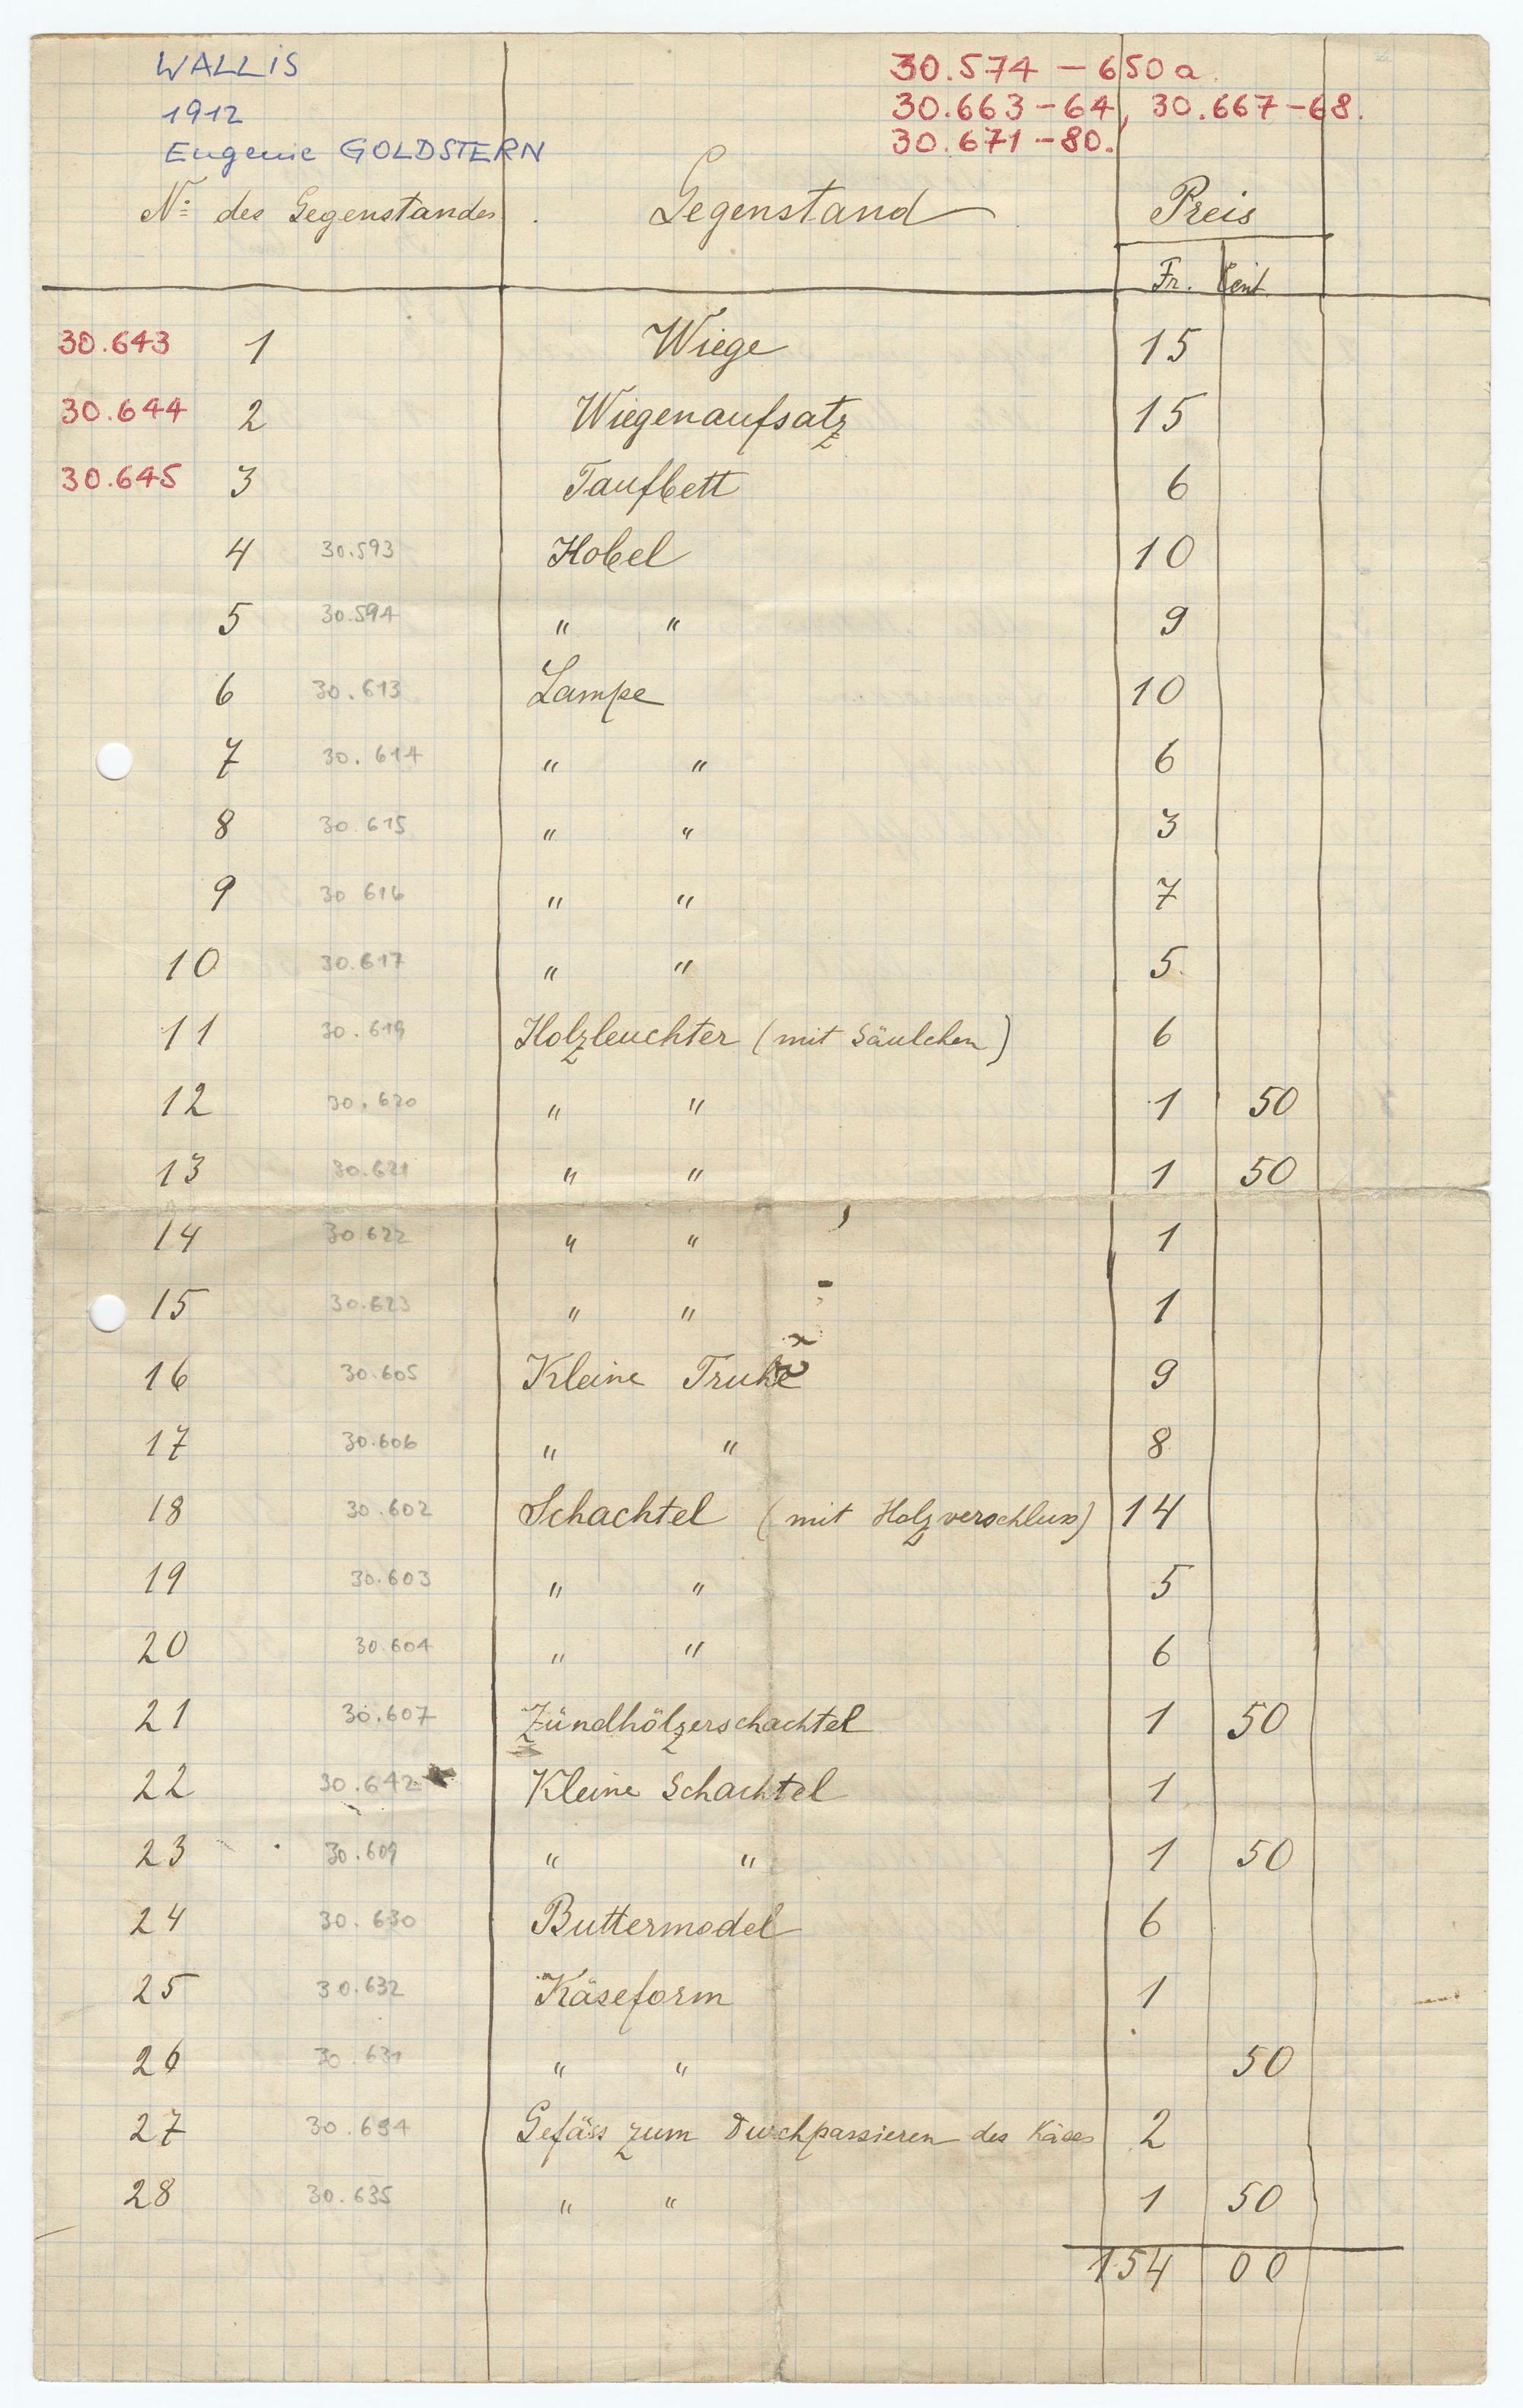 WALLIS
1912
Eugenie GOLDSTERN
30.574 – 650a.
30.663 – 64, 30.667 – 68.
30.671 – 80.
No des Gegenstandes. Gegenstand Preis
Fr. Cent.
30.643 1 Wiege 15
30.644 2 Wiegenaufsatz 15
30.645 3 Taufbett 6
4 30.593 Hobel 10
5 30.594 " " 9
6 30.613 Lampe 10
7 30.614 " " 6
8 30.615 " " 3
9 30 616 " " 7
10 30.617 " " 5.
11 30.619 Holzleuchter (mit Säulchen) 6
12 30.620 " " 1 50
13 30.621 " " 1 50
14 30.622 " " 1
15 30.623 " " 1
16 30.605 Kleine Truhe 9
17 30.606 " " 8
18 30.602 Schachtel (mit Holzverschluss) 14
19 30.603 " " 5
20 30.604 " " 6
21 30.607 Zündhölzerschachtel 1 50
22 30.642 Kleine Schachtel 1
23 30.609 " " 1 50
24 30.630 Buttermodel 6
25 30.632 Käseform 1
26 30.631 " " 50
27 30.634 Gefäss zum Durchpassieren des Käses 2
28 30.635 " " 1 50
154 00